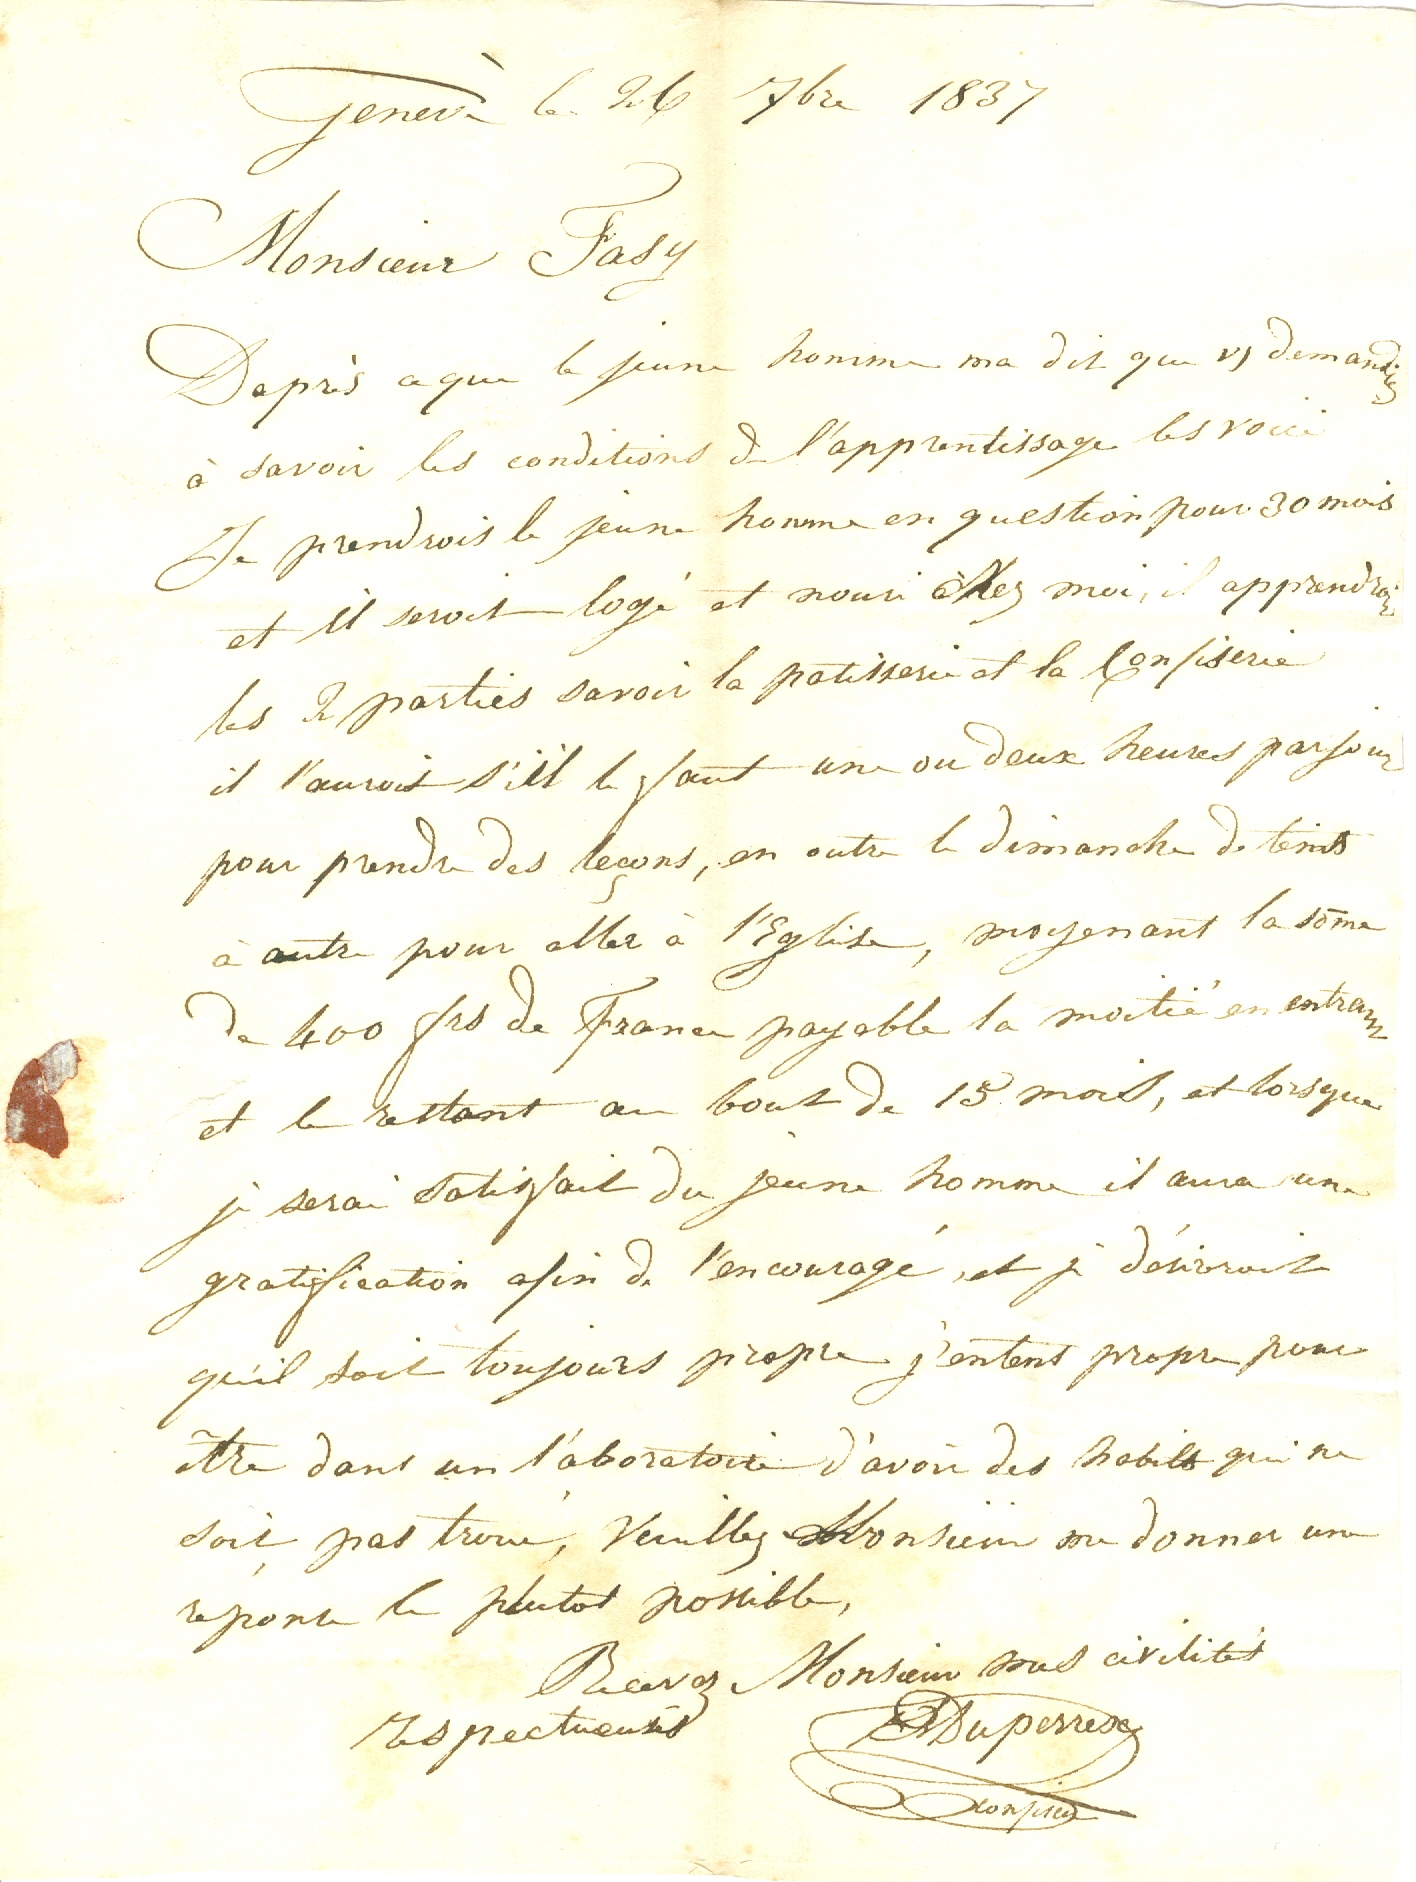 Genève le 26 7bre 1837
Monsieur Fasy
Daprès ceque le jeune homme ma dit que vs demandiez
à savoir les conditions de l'apprentissage les voici
Je prendrois le jeune homme en question pour 30 mois
et il seroit logé et nouri chez moi, il apprendrois
les 2 parties savoir la patisserie et la Confiserie
il l'auroit s'il le faut une ou deux heures par jour
pour prendre des leçons, en outre le dimanche de tems
à autre pour aller à l'Eglise, moyenant la sōme
de 400 frs de France payable la moitié en entrant
et le restant au bout de 15 mois, et lorsque
je serai satisfait du jeune homme il aura une
gratification afin de l'encouragé, et je désireroit
qu'il soit toujours propre j'entent propre pour
être dans un l'aboratoire d'avoir des habits qui ne
soit pas troué, Veuillez Monsieur me donner une
réponse le plutot possible,
Recevez Monsieur mes civilités
respectueuses
Duperrex
confiseur